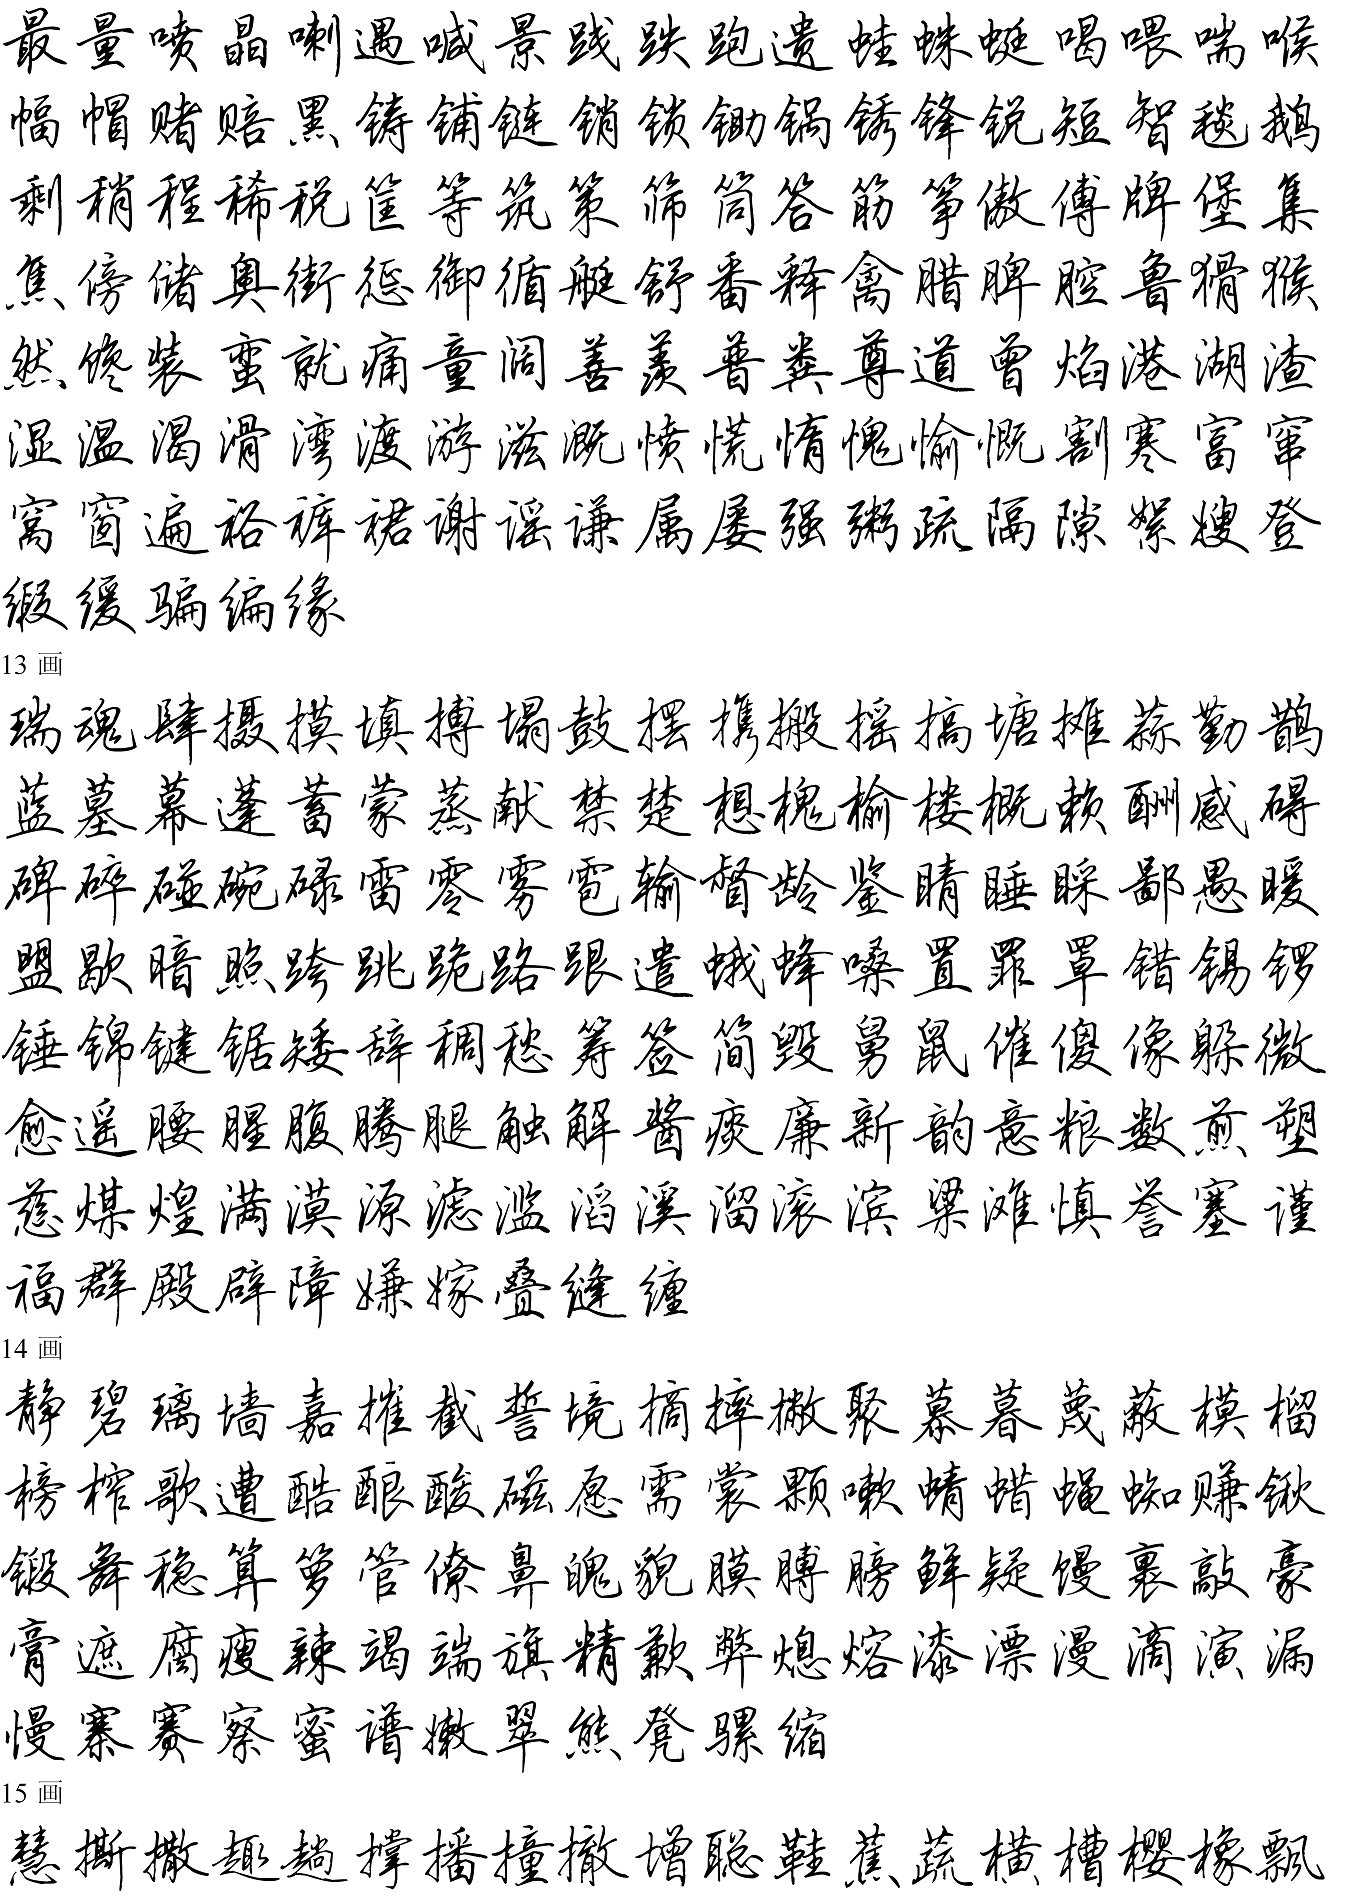 最量喷晶喇遇喊景践跌跑遗蛙蛛蜓喝喂喘喉
幅帽赌赔黑铸铺链销锁锄锅锈锋锐短智毯鹅
剩稍程稀税筐等筑策筛筒答筋筝傲傅牌堡集
焦傍储奥街惩御循艇舒番释禽腊脾腔鲁猾猴
然馋装蛮就痛童阔善羡普粪尊道曾焰港湖渣
湿温渴滑湾渡游滋溉愤慌惰愧愉慨割寒富窜
窝窗遍裕裤裙谢谣谦属屡强粥疏隔隙絮嫂登
缎缓骗编缘
13 画
瑞魂肆摄摸填搏塌鼓摆携搬摇搞塘摊蒜勤鹊
蓝墓幕蓬蓄蒙蒸献禁楚想槐榆楼概赖酬感碍
碑碎碰碗碌雷零雾雹输督龄鉴睛睡睬鄙愚暖
盟歇暗照跨跳跪路跟遣蛾蜂嗓置罪罩错锡锣
锤锦键锯矮辞稠愁筹签简毁舅鼠催傻像躲微
愈遥腰腥腹腾腿触解酱痰廉新韵意粮数煎塑
慈煤煌满漠源滤滥滔溪溜滚滨粱滩慎誉塞谨
福群殿辟障嫌嫁叠缝缠
14 画
静碧璃墙嘉摧截誓境摘摔撇聚慕暮蔑蔽模榴
榜榨歌遭酷酿酸磁愿需裳颗嗽蜻蜡蝇蜘赚锹
锻舞稳算箩管僚鼻魄貌膜膊膀鲜疑馒裹敲豪
膏遮腐瘦辣竭端旗精歉弊熄熔漆漂漫滴演漏
慢寨赛察蜜谱嫩翠熊凳骡缩
15 画
慧撕撒趣趟撑播撞撤增聪鞋蕉蔬横槽樱橡飘